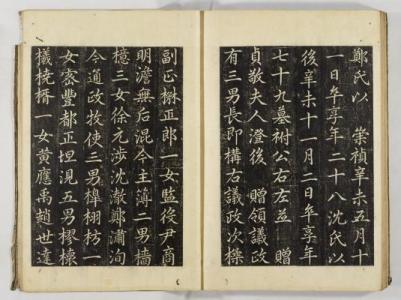 鄭氏以 崇禎辛未五月十
一日卒享年二十八沈氏以
後辛未十一月二日卒享年
七十九墓祔公右左並 贈
貞敬夫人澄後 贈領議政
有三男長即構右議政次樑
副正楙正郎一女監役尹商
明澹無后混今主簿二男檣
檍三女徐元涉沈澂鄭瀟洵
今通政牧使三男樟栩枋一
女 豐都正坦浞五男樛楝
檥 楈一女黄應禹趙世達